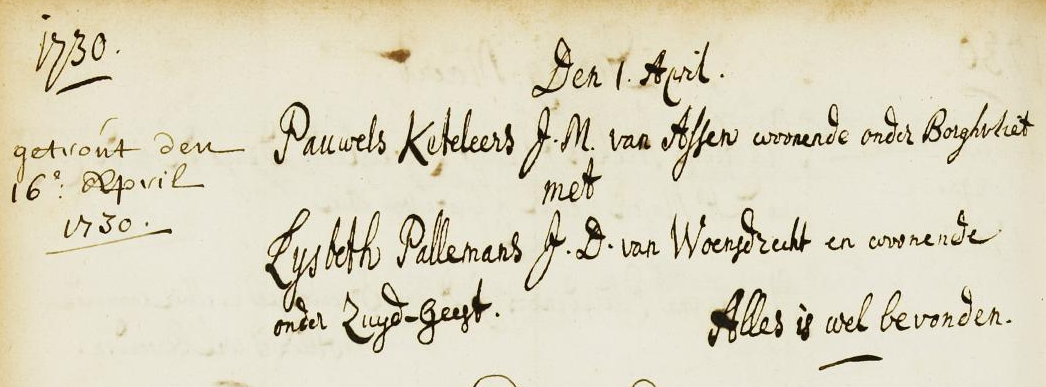 1730.
Den 1. April.
Pauwels Keteleers J. M. van Assen woonende onder Borghvliet
getrout den
16e. April
1730.
met
Lysbeth Pallemans J. D. van Woensdrecht en woonende
onder Zuyd-Geest.
Alles is wel bevonden.